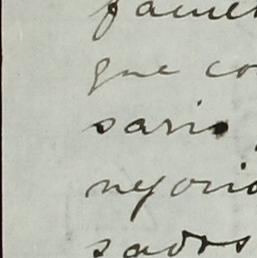 que co
sario
nejorio
sados